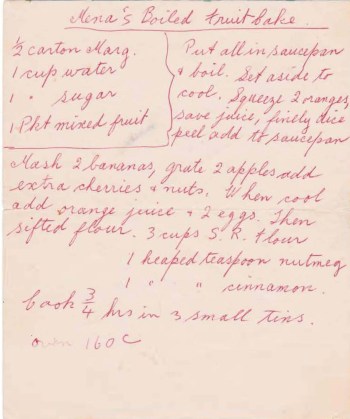 Mena's Boiled Fruit Cake.
½ carton Marg.
1 cup water
1 " sugar
1 Pkt mixed fruit
Put all in saucepan
& boil. Set aside to
cool. Squeeze 2 oranges,
save juice, finely dice
peel add to saucepan
Mash 2 bananas, grate 2 apples add
extra cherries & nuts. When cool
add orange juice & 2 eggs. Then
sifted flour. 3 cups S. R. flour
1 heaped teaspoon nutmeg
1 " " cinnamon.
Cook ¾ hrs in 3 small tins.
oven 160 C